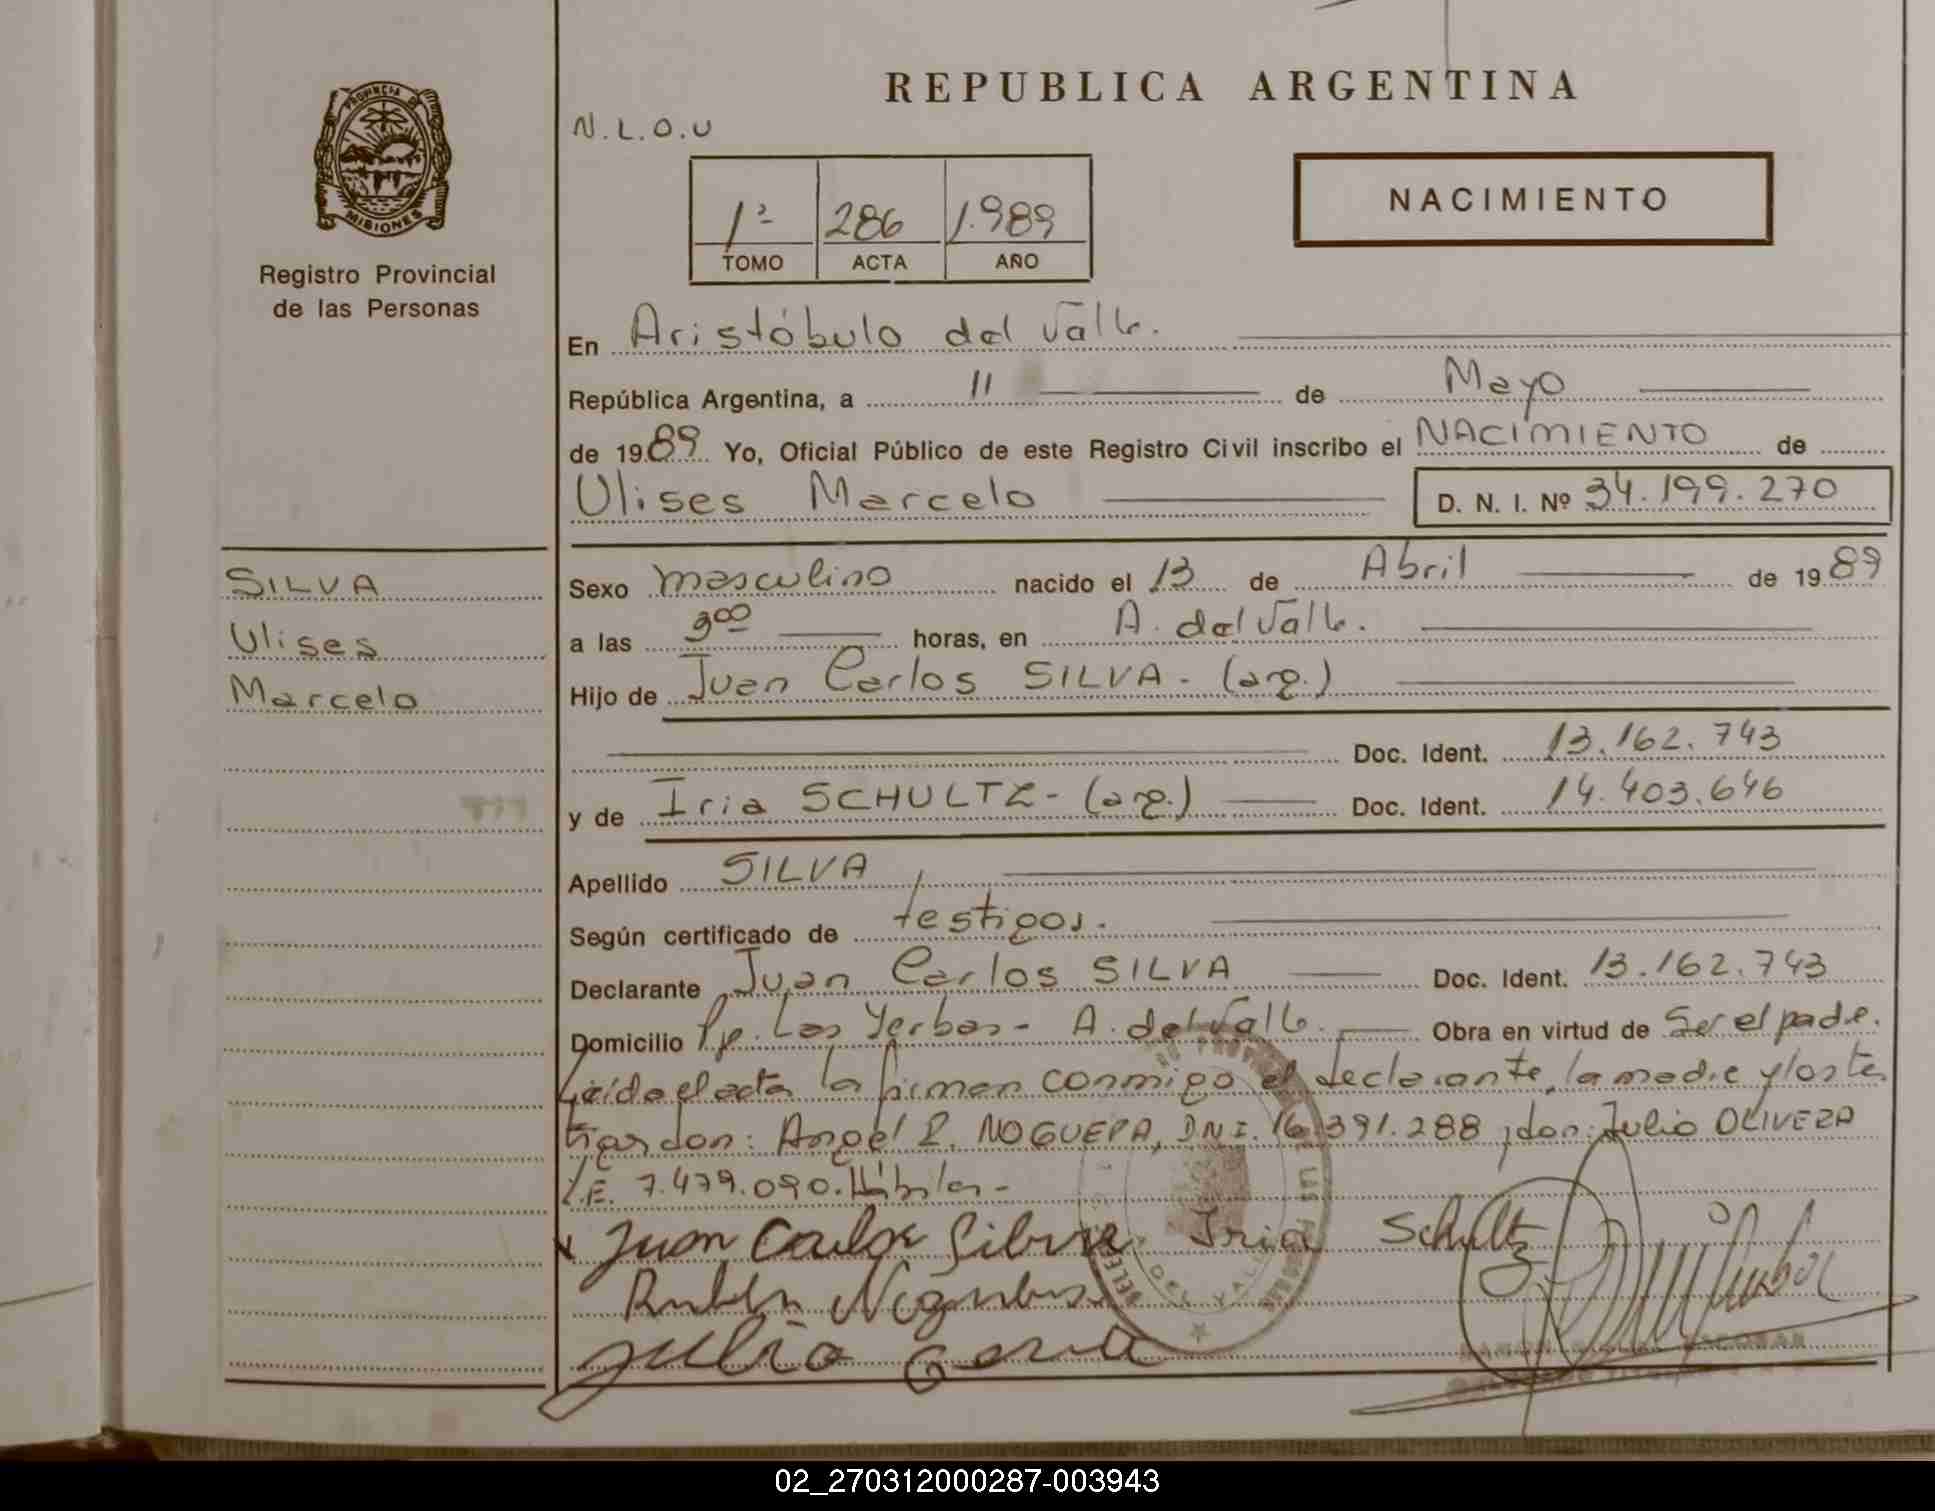 REPUBLICA ARGENTINA
N.L.O.U
PROVINCIA DE
MISIONES
Registro Provincial
de las Personas
1º 286 1.989
TOMO ACTA AÑO
NACIMIENTO
En Aristóbulo del Valle.
República Argentina, a 11 de Mayo
de 1989 Yo, Oficial Público de este Registro Civil inscribo el NACIMIENTO de
Ulises Marcelo D. N. I. Nº 34.199.270
SILVA
Ulises
Marcelo
Sexo masculino nacido el 13 de Abril de 1989
a las 9 00 horas, en A. del Valle.
Hijo de Juan Carlos SILVA - (arg.)
Doc. Ident. 13.162.743
y de Iria SCHULTZ - (arg.) Doc. Ident. 14.403.646
Apellido SILVA
Según certificado de testigos.
Declarante Juan Carlos SILVA Doc. Ident. 13.162.743
Domicilio Pje. Las Yerbas - A. del Valle. Obra en virtud de Ser el padre.
Leída el acta la firman conmigo el declarante, la madre y los tes
tigos don: Angel R. NOGUERA, DNI. 16.391.288 y don: Julio OLIVERA
L.E. 7.479.090. Hábiles -
Juan Carlos Silva Iria Schultz
Julio
DEL VALLE
ESCOBAR
02_270312000287-003943